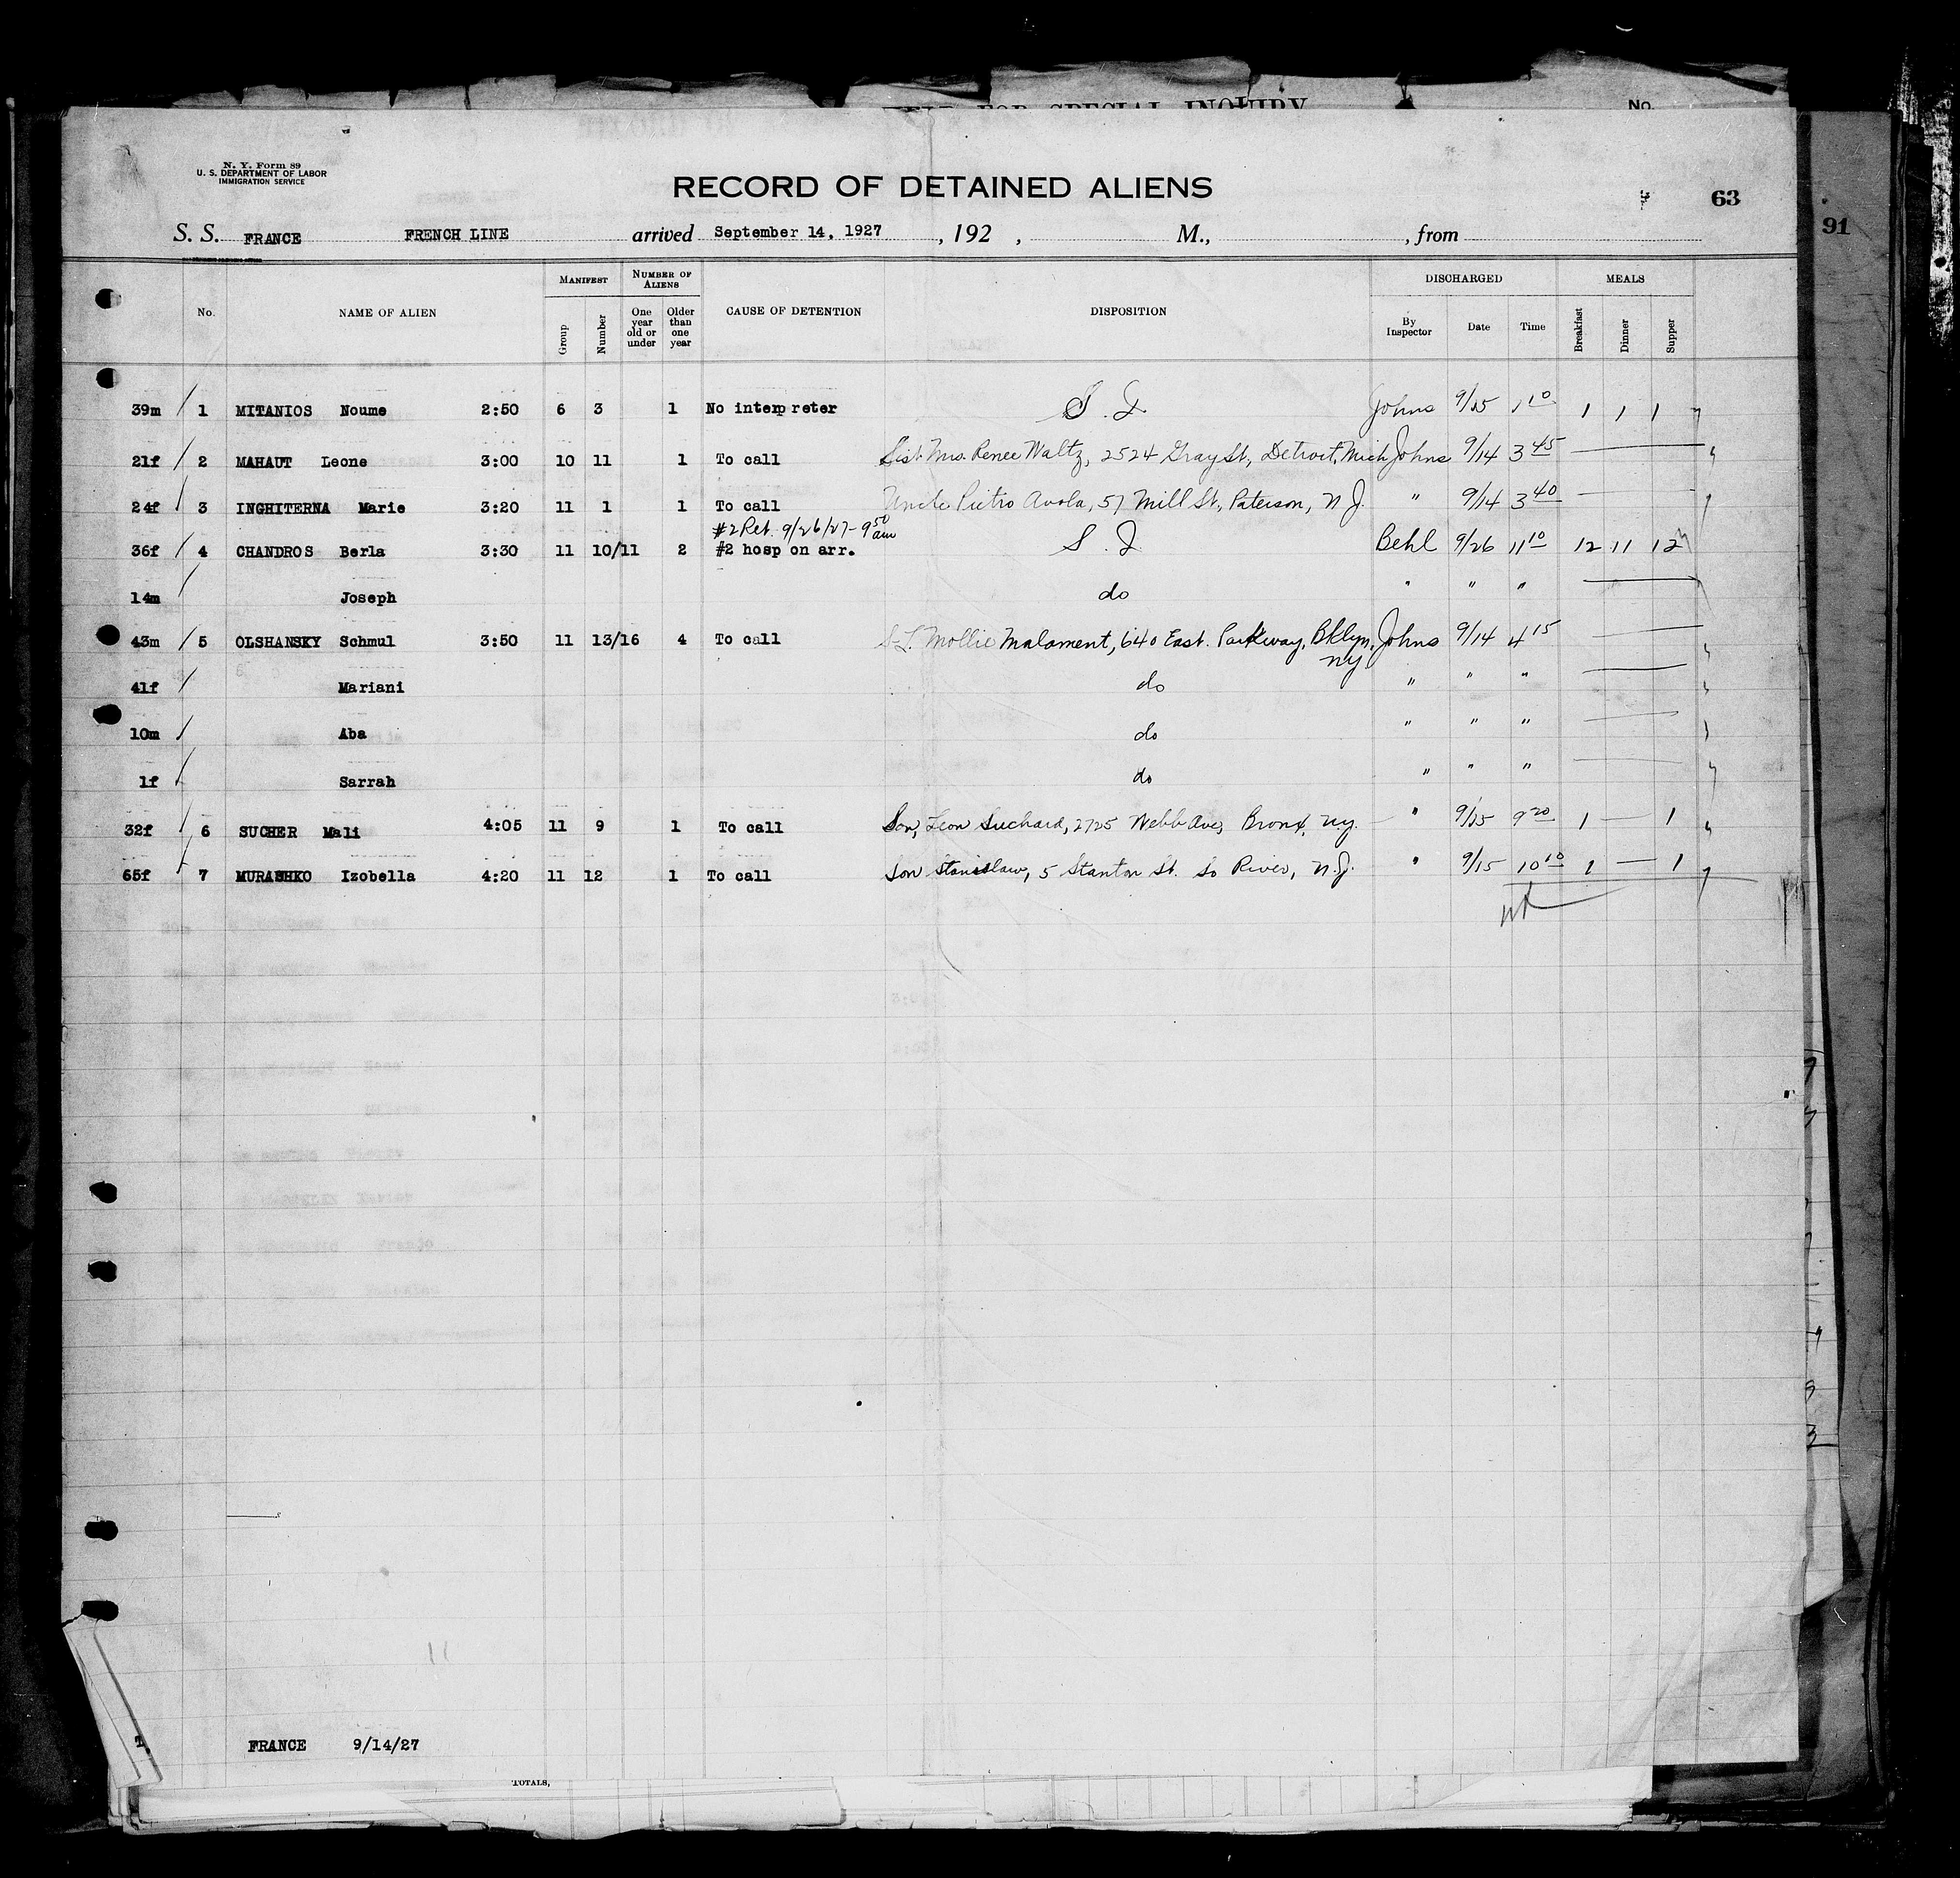 No.
N. Y. Form 89
U. S. DEPARTMENT OF LABOR
IMMIGRATION SERVICE
RECORD OF DETAINED ALIENS
63
91
S. S. FRANCE FRENCH LINE arrived September 14, 1927, 192 , M., , from
No. NAME OF ALIEN MANIFEST NUMBER OF ALIENS CAUSE OF DETENTION DISPOSITION DISCHARGED MEALS
Group Number One year old or under Older than one year By Inspector Date Time Breakfast Dinner Supper
39m 1 MITANIOS Noume 2:50 6 3 1 No interpreter S. I. Johns 9/15 1 10 1 1 1
21f 2 MAHAUT Leone 3:00 10 11 1 To call Sist. Mrs. Renee Waltz, 2524 Gray St, Detroit, Mich Johns 9/14 3 45
24f 3 INGHITERNA Marie 3:20 11 1 1 To call Uncle Pietro Avola, 57 Mill St, Paterson, N J. " 9/14 3 40
#2 Ret. 9/26/27 - 9 50 am
36f 4 CHANDROS Berla 3:30 11 10/11 2 #2 hosp on arr. S. I. Behl 9/26 11 10 12 11 12
14m Joseph do " " "
43m 5 OLSHANSKY Schmul 3:50 11 13/16 4 To call Mollie Malament, 640 East. Parkway, Bklyn, NY Johns 9/14 4 15
41f Mariani do " " "
10m Aba do " " "
1f Sarrah do " " "
32f 6 SUCHER Mali 4:05 11 9 1 To call Son, Leon Suchard, 2725 Webb Ave, Bronx, N.Y. " 9/15 9 20 1 — 1
65f 7 MURASHKO Izobella 4:20 11 12 1 To call Son Stanislaw, 5 Stanton St. So River, N.J. " 9/15 10 10 1 — 1
11
FRANCE 9/14/27
TOTALS,